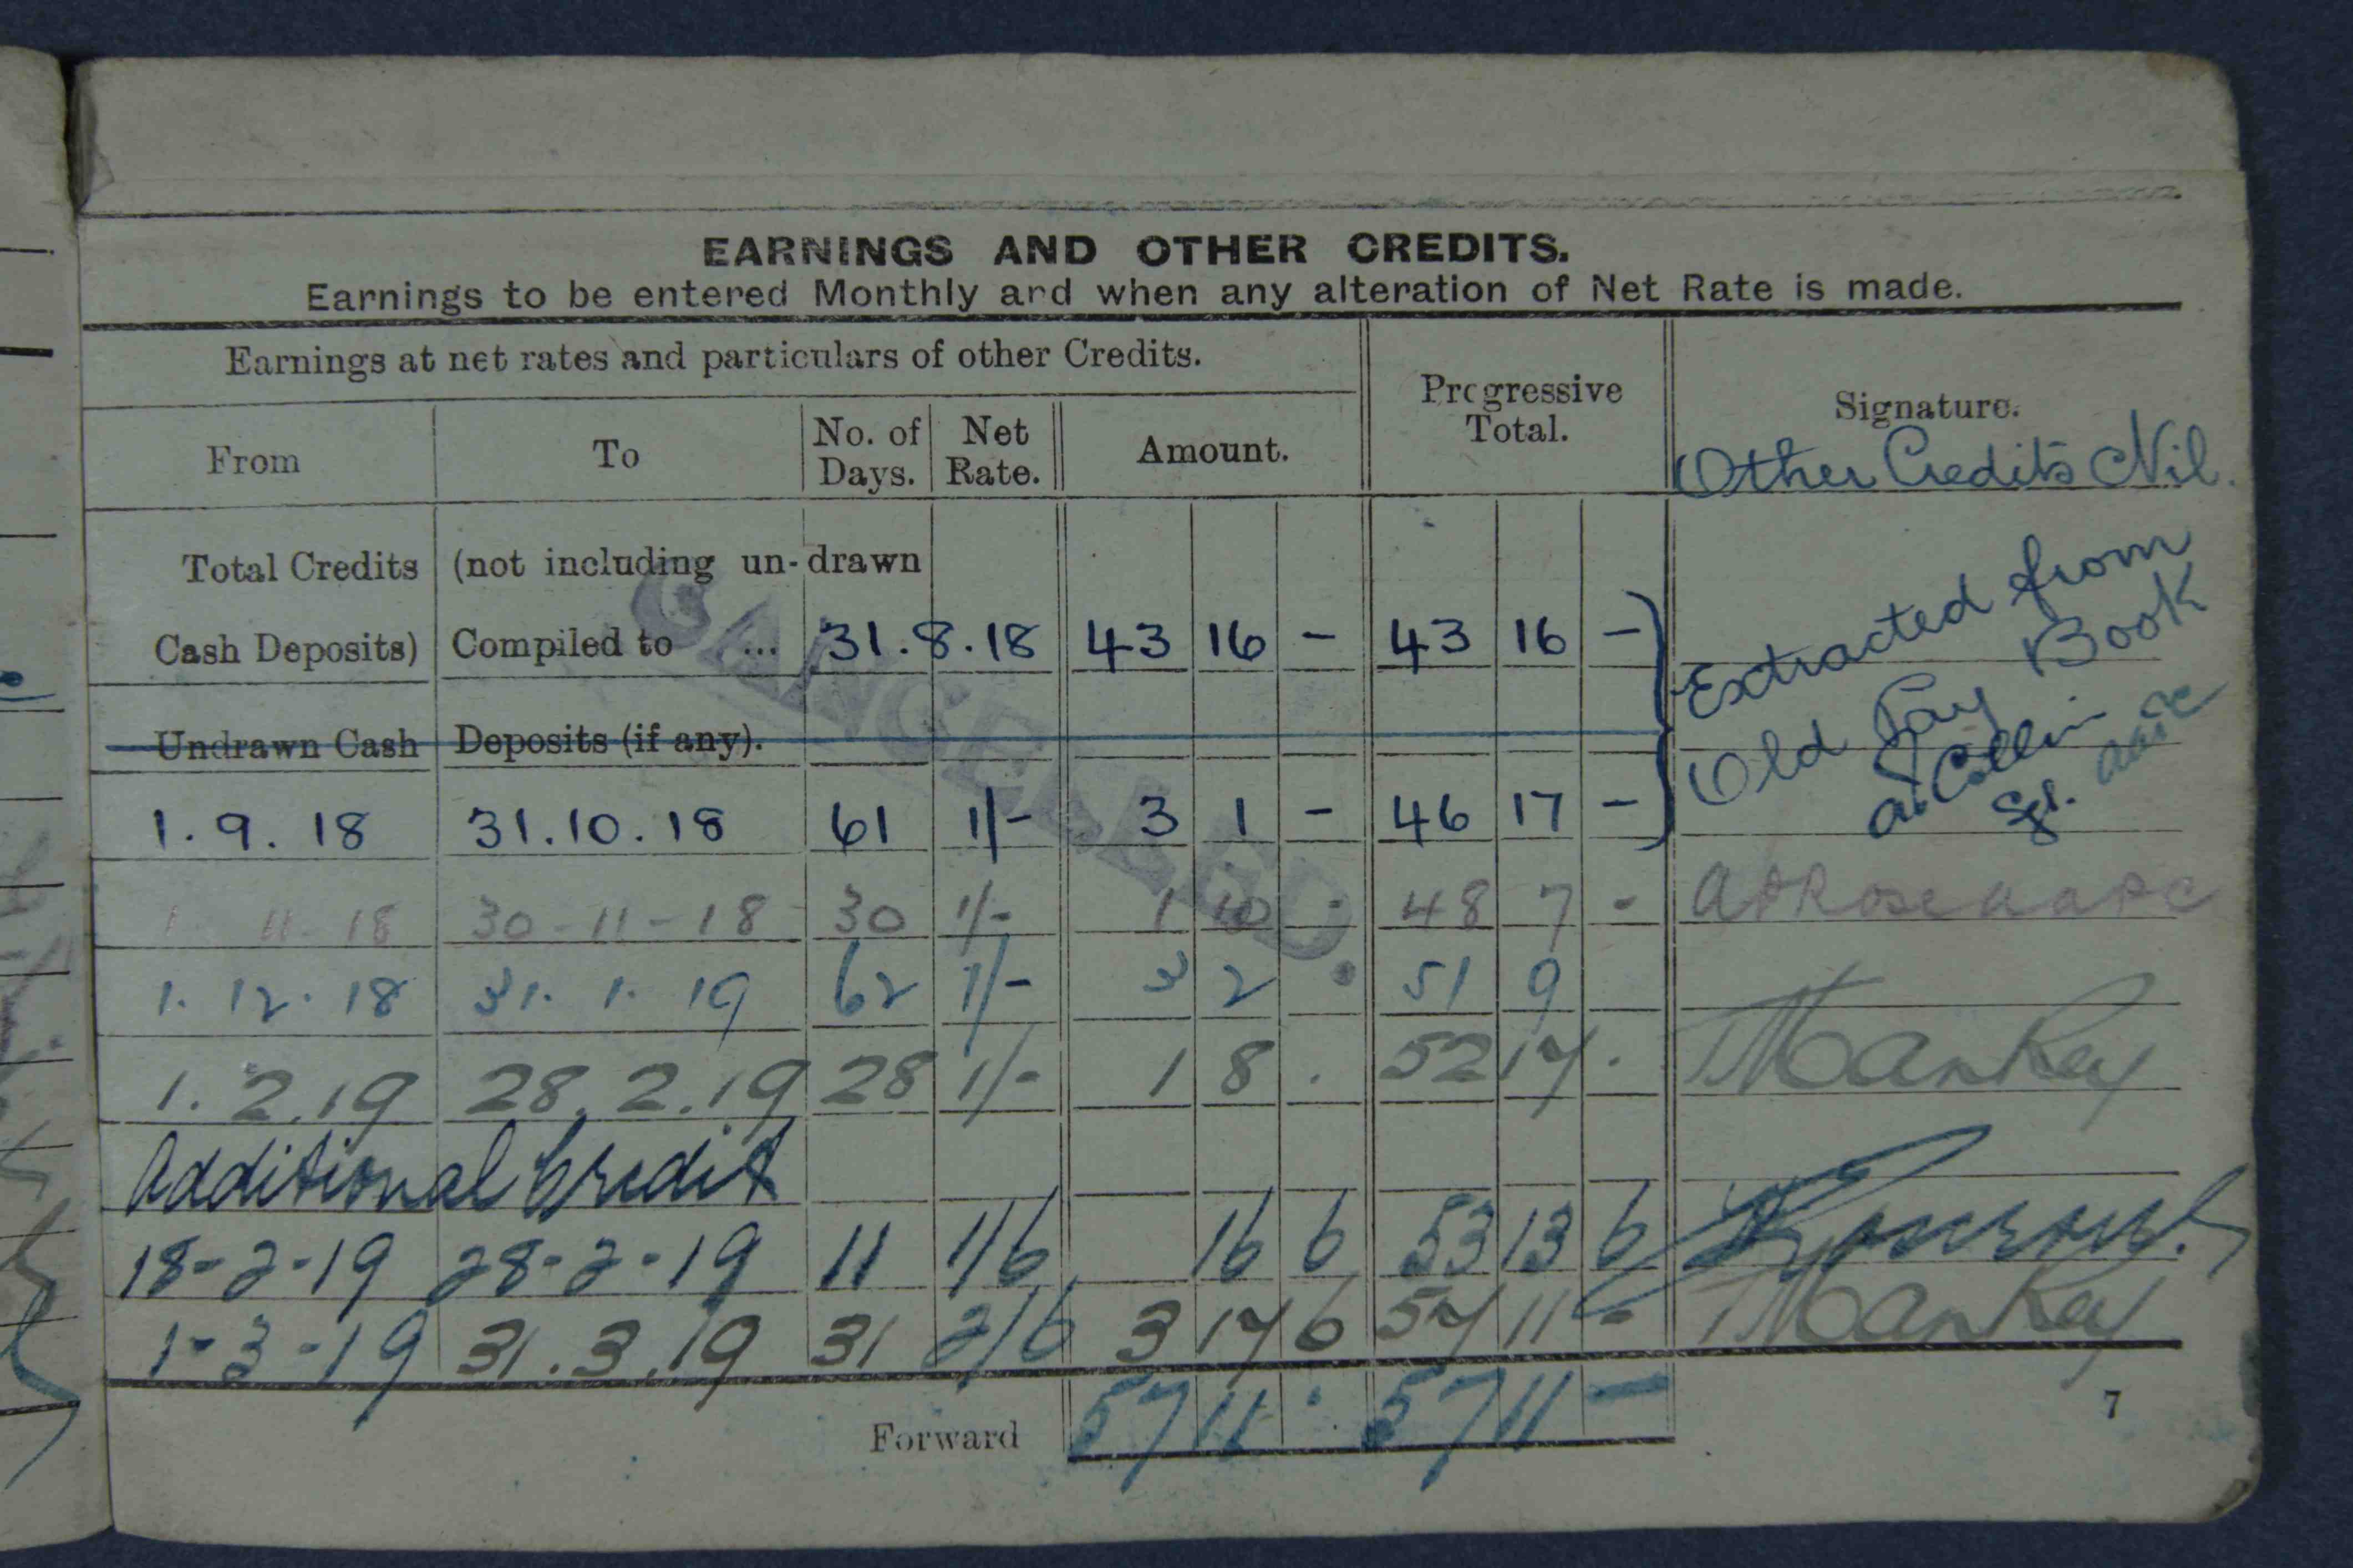 EARNINGS AND OTHER CREDITS.
Earnings to be entered Monthly and when any alteration of Net Rate is made.
Earnings at net rates and particulars of other Credits.
Progressive Total.
Signature.
From To No. of Days. Net Rate. Amount.
Other Credits Nil.
Total Credits (not including un-drawn
Cash Deposits) Compiled to ... 31.8.18 43 16 - 43 16 -
Extracted from
Old Pay Book
Undrawn Cash Deposits (if any).
1.9.18 31.10.18 61 1/- 3 1 - 46 17 -
CANCELLED.
1. 11-18 30-11-18 30 1/- 1 10 - 48 7 -
1.12.18 31.1.19 62 1/- 3 2 51 9
1.2.19 28.2.19 28 1/- 1 8 . 52 17 .
Additional Credit
18-2-19 28-2-19 11 1/6 16 6 53 13 6
1-3-19 31.3.19 31 2/6 3 17 6 57 11 -
Forward 57 11 . 57 11 -
7